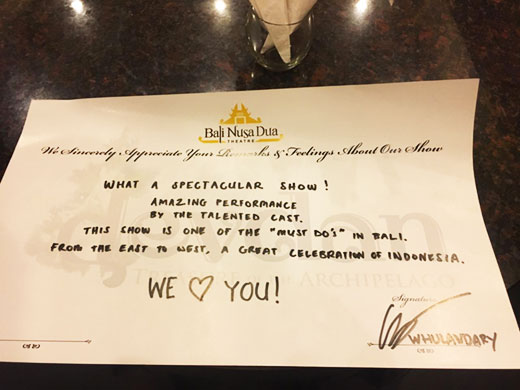 Bali Nusa Dua
THEATRE
We Sincerely Appreciate Your Remarks & Feelings About Our Show
WHAT A SPECTACULAR SHOW!
AMAZING PERFORMANCE
BY THE TALENTED CAST.
THIS SHOW IS ONE OF THE "MUST DO'S" IN BALI.
FROM THE EAST TO WEST, A GREAT CELEBRATION OF INDONESIA.
ARCHIPELAGO
WE ♡ YOU!
Signature
WHULANDARY